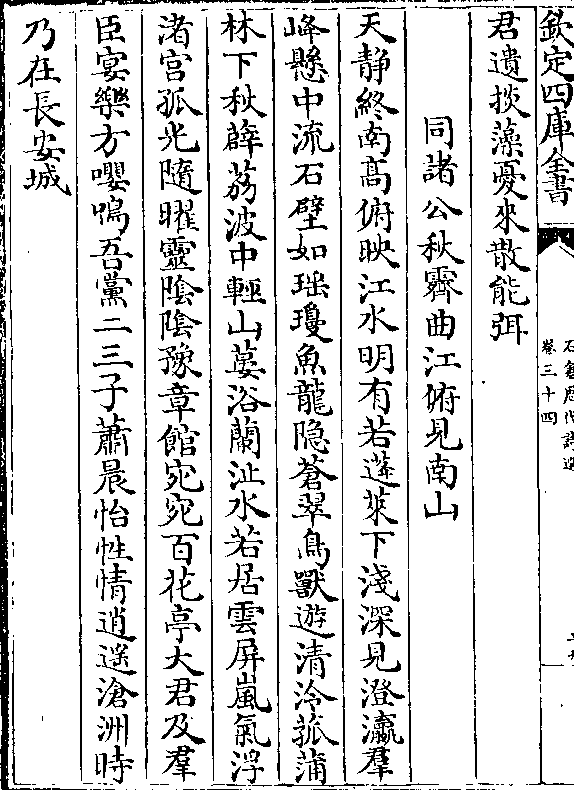 欽定四庫全書
石倉歷代詩選
卷三十四
君遺掞藻憂來散能弭
同諸公秋霽曲江俯見南山
天静終南髙俯映江水明有若蓬萊下淺深見澄瀛羣
峰懸中流石壁如瑶瓊魚龍隐蒼翠鳥獸遊清泠菰蒲
林下秋薜荔波中輕山蔓浴蘭沚水若居雲屏嵐氣浮
渚宫孤光隨曜靈陰陰豫章館宛宛百花亭大君及羣
臣宴樂方嚶鳴吾黨二三子蕭晨怡性情逍遥滄洲時
乃在長安城